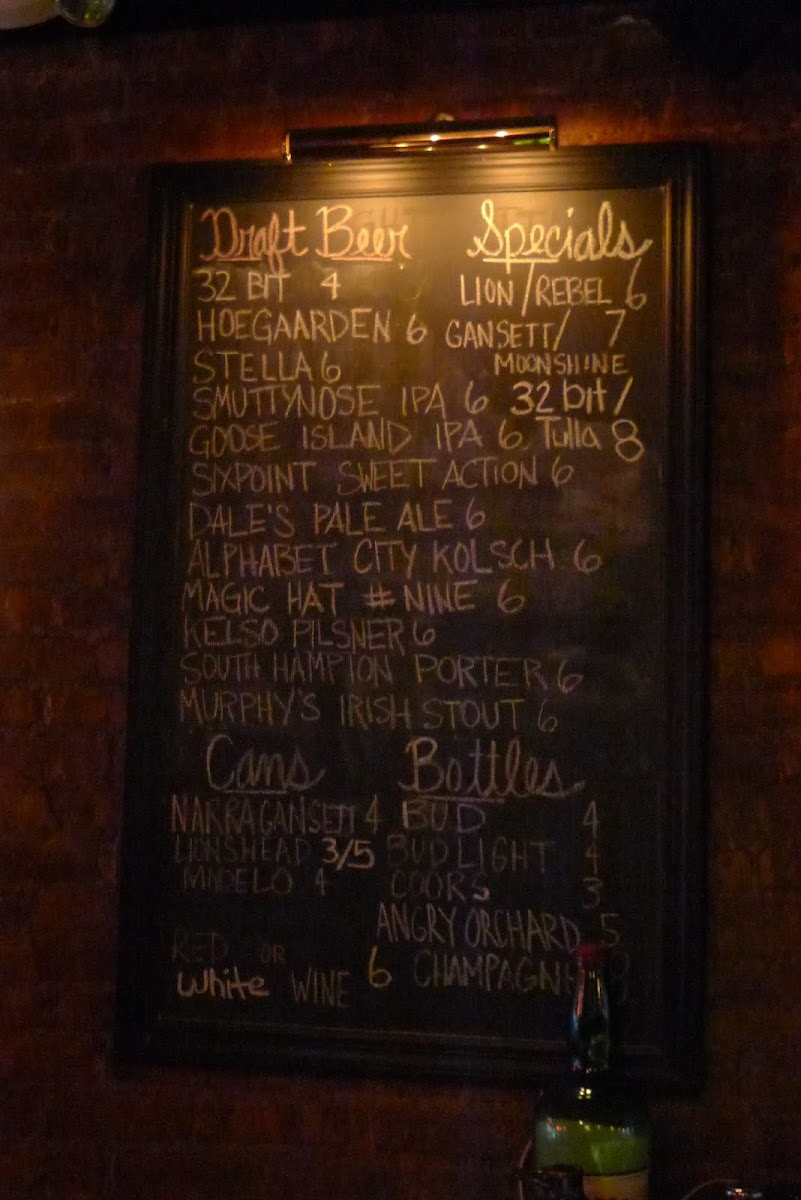 Draft Beer
32 BIT 4
HOEGAARDEN 6
STELLA 6
SMUTTYNOSE IPA 6
GOOSE ISLAND IPA 6
SIXPOINT SWEET ACTION 6
DALE'S PALE ALE 6
ALPHABET CITY KOLSCH 6
MAGIC HAT #NINE 6
KELSO PILSNER 6
SOUTH HAMPTON PORTER 6
MURPHY'S IRISH STOUT 6
Specials
LION/REBEL 6
GANSETT/ 7
MOONSHINE
32 bit/
Tulla 8
Cans
NARRAGANSETT 4
LIONSHEAD 3/5
MODELO 4
RED OR
White WINE 6
Bottles
BUD 4
BUD LIGHT 4
COORS 3
ANGRY ORCHARD 5